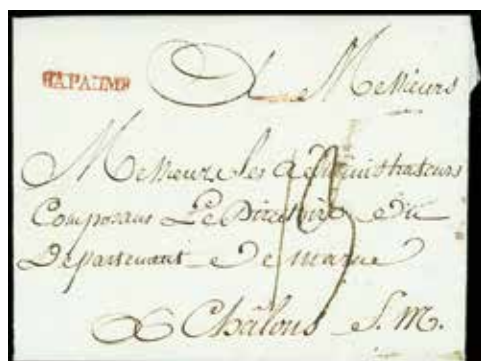 BAPAUME
A Messieurs
Messieurs Les administrateurs
Composans Le Directoire du
Département de marne
A Châlons S. M.